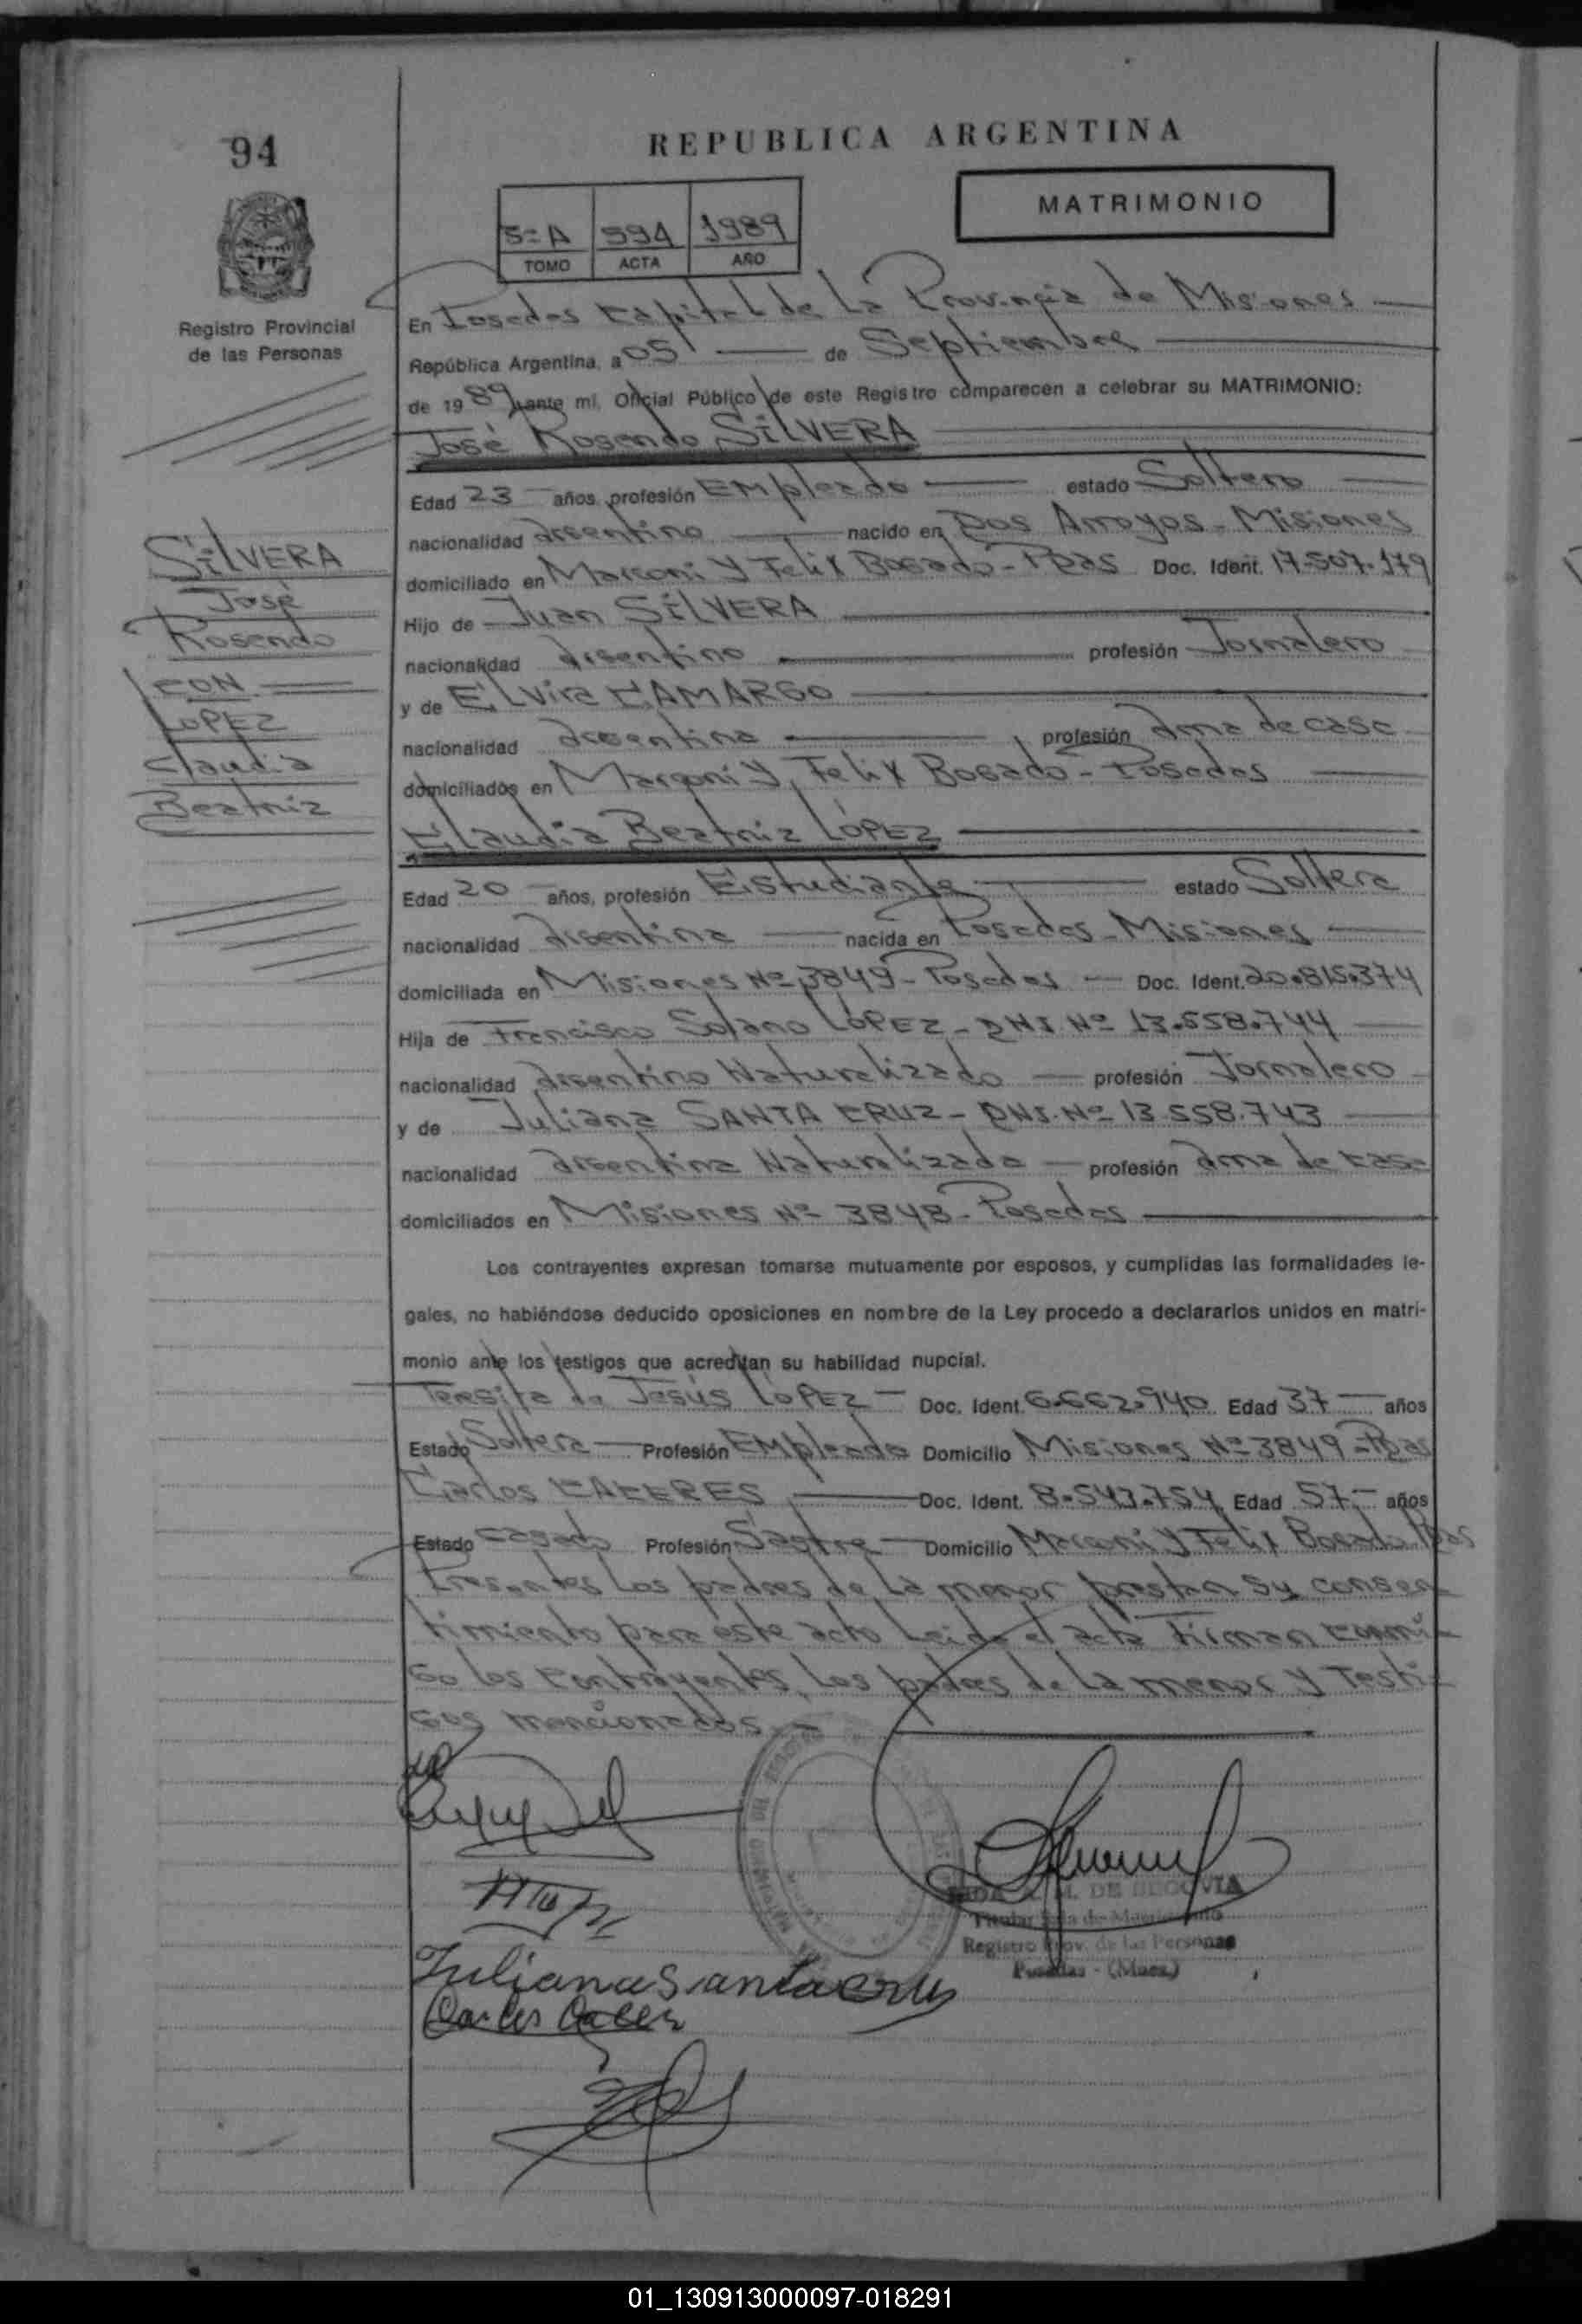 94
REPUBLICA ARGENTINA
MATRIMONIO
5=A 594 1989
TOMO ACTA AÑO
Registro Provincial
de las Personas
En Posadas Capital de La Provincia de Misiones
República Argentina, a 05 de Septiembre
de 1989 ante mi, Oficial Público de este Registro comparecen a celebrar su MATRIMONIO:
José Rosendo SILVERA
Edad 23 años, profesión Empleado estado Soltero
nacionalidad Argentino nacido en Dos Arroyos - Misiones
domiciliado en Marconi y Felix Bogado - Pdas Doc. Ident. 17.507.179
Hijo de Juan SILVERA
nacionalidad Argentino profesión Jornalero
y de Elvira CAMARGO
nacionalidad Argentina profesión Ama de casa
domiciliados en Marconi y Felix Bogado - Posadas
Claudia Beatriz LÓPEZ
Edad 20 años, profesión Estudiante estado Soltera
nacionalidad Argentina nacida en Posadas - Misiones
domiciliada en Misiones Nº 3849 - Posadas Doc. Ident. 20.815.374
Hija de Francisco Solano LOPEZ - DNI Nº 13.558.744
nacionalidad Argentino Naturalizado profesión Jornalero
y de Juliana SANTA CRUZ - DNI. Nº 13.558.743
nacionalidad Argentina Naturalizada profesión Ama de casa
domiciliados en Misiones Nº 3848 - Posadas
Los contrayentes expresan tomarse mutuamente por esposos, y cumplidas las formalidades le-
gales, no habiéndose deducido oposiciones en nombre de la Ley procedo a declararlos unidos en matri-
monio ante los testigos que acreditan su habilidad nupcial.
Teresita de Jesús LOPEZ - Doc. Ident. 6.662.940 Edad 37 años
Estado Soltera Profesión Empleada Domicilio Misiones Nº 3849 - Pdas
Carlos CACERES Doc. Ident. 8.543.754 Edad 57 años
Estado casado Profesión Sastre Domicilio Marconi y Felix Bogado Pdas
Presentes Los padres de La menor prestan su consen-
timiento para éste acto Leída el acta Firman conmi-
go los contrayentes, Los padres de La menor y Testi-
gos mencionados.-
SILVERA
José
Rosendo
CON
LOPEZ
Claudia
Beatriz
Juliana Santacruz
Carlos
M. DE SEGOVIA
Titular Sala de Matrimonio
Registro Prov. de las Personas
Posadas - (Mnes.)
01_130913000097-018291